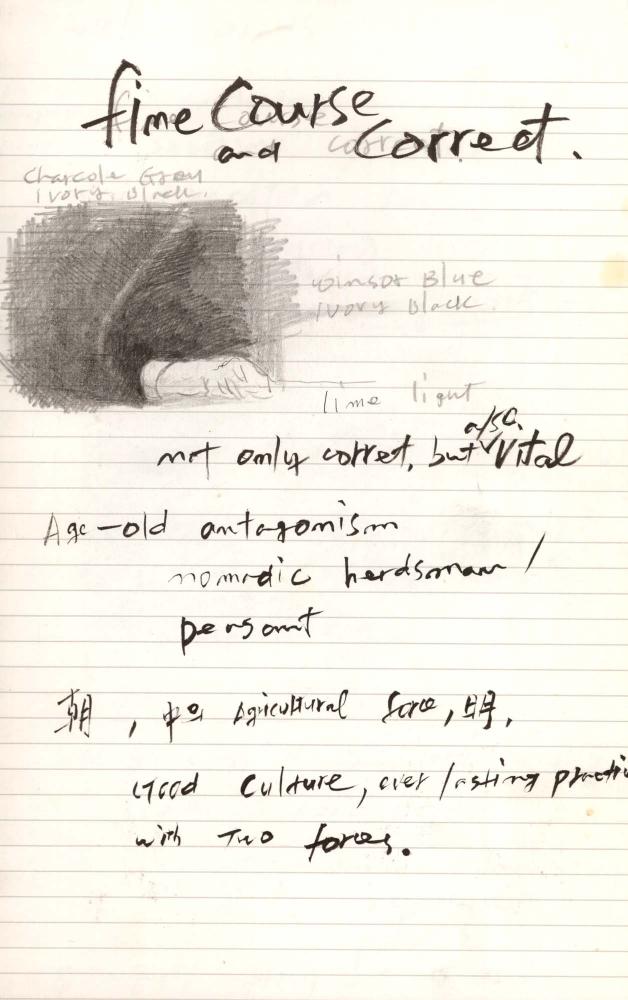 fine Course
and Correct.
Charcole Gray
Ivory black.
Winsor Blue
Ivory black.
lime light
not only corret, but also Vital
Age-old antagonism
nomadic herdsman /
persant
朝, 中의 Agricultural force, 明,
Good Culture, ever lasting practi
with Two forces.